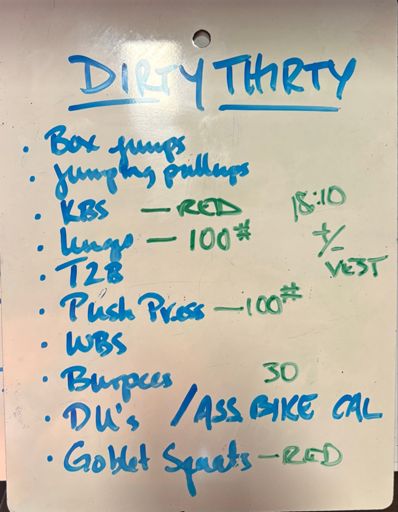 DIRTY THIRTY
· Box jumps
· Jumping pullups
· KBS — RED 18:10
· lunges — 100# +/- VEST
· T2B
· Push Press — 100#
· WBS
· Burpees 30
· DU's / ASS BIKE CAL
· Goblet Squats — RED